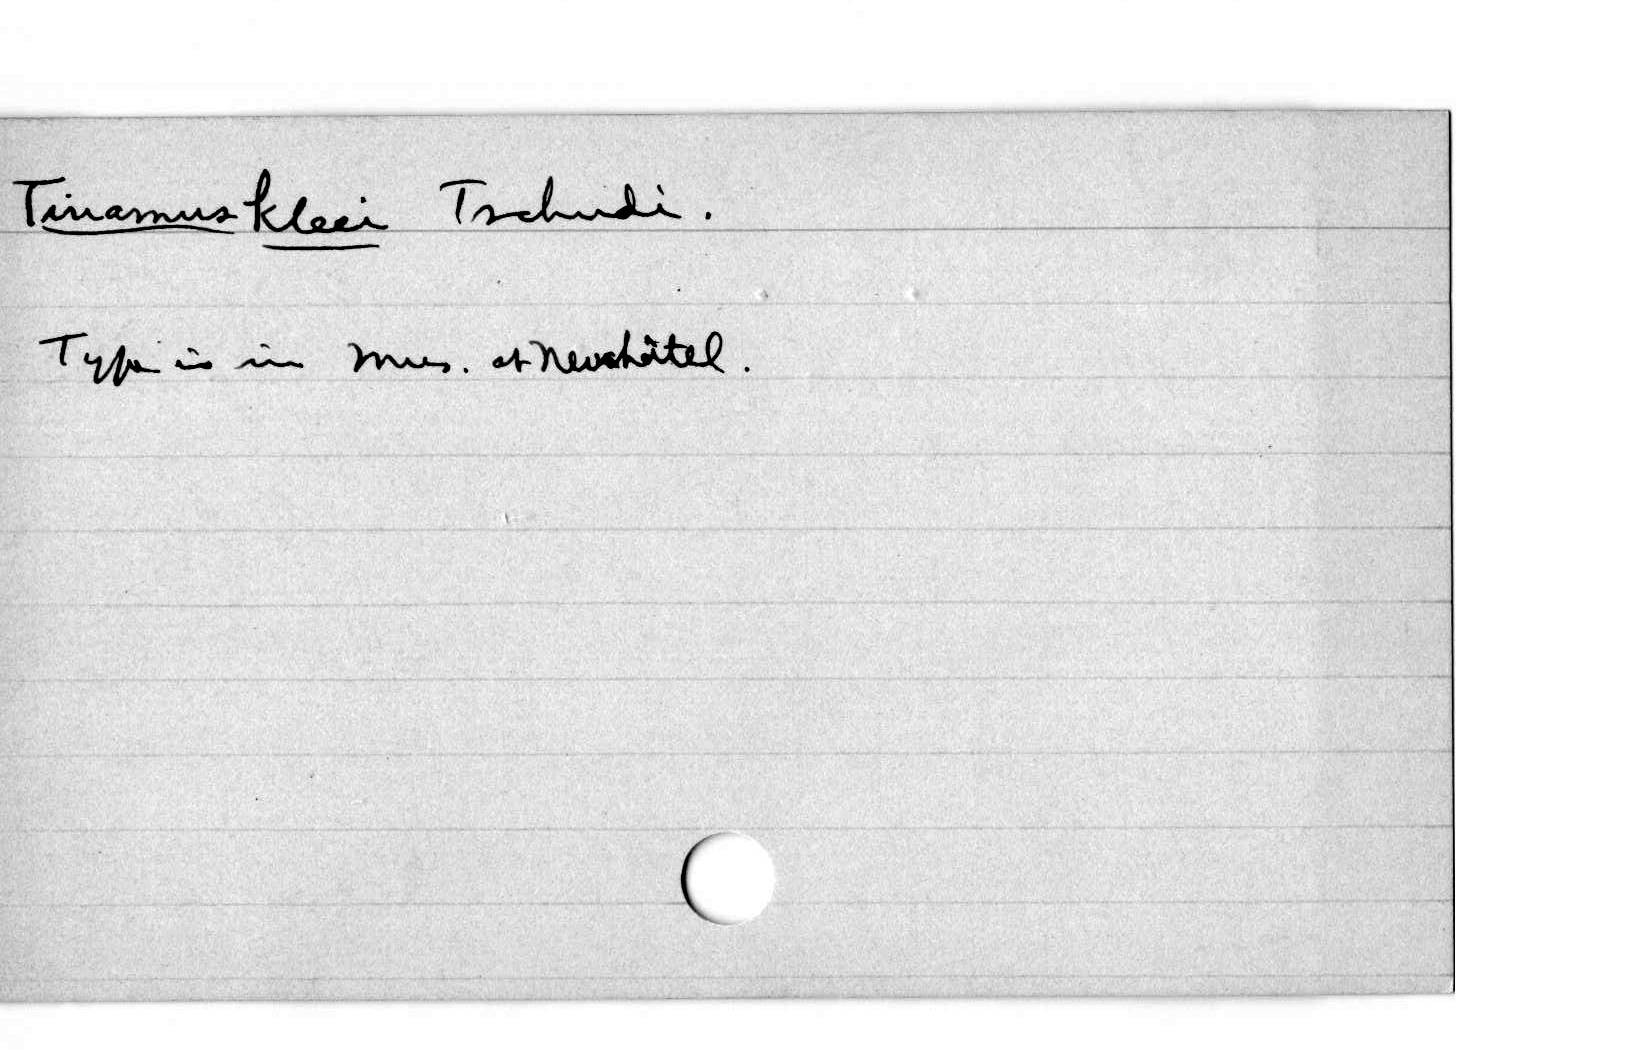 Tinamus kleei Tschudi.
Type is in Mus. at Neuchâtel.